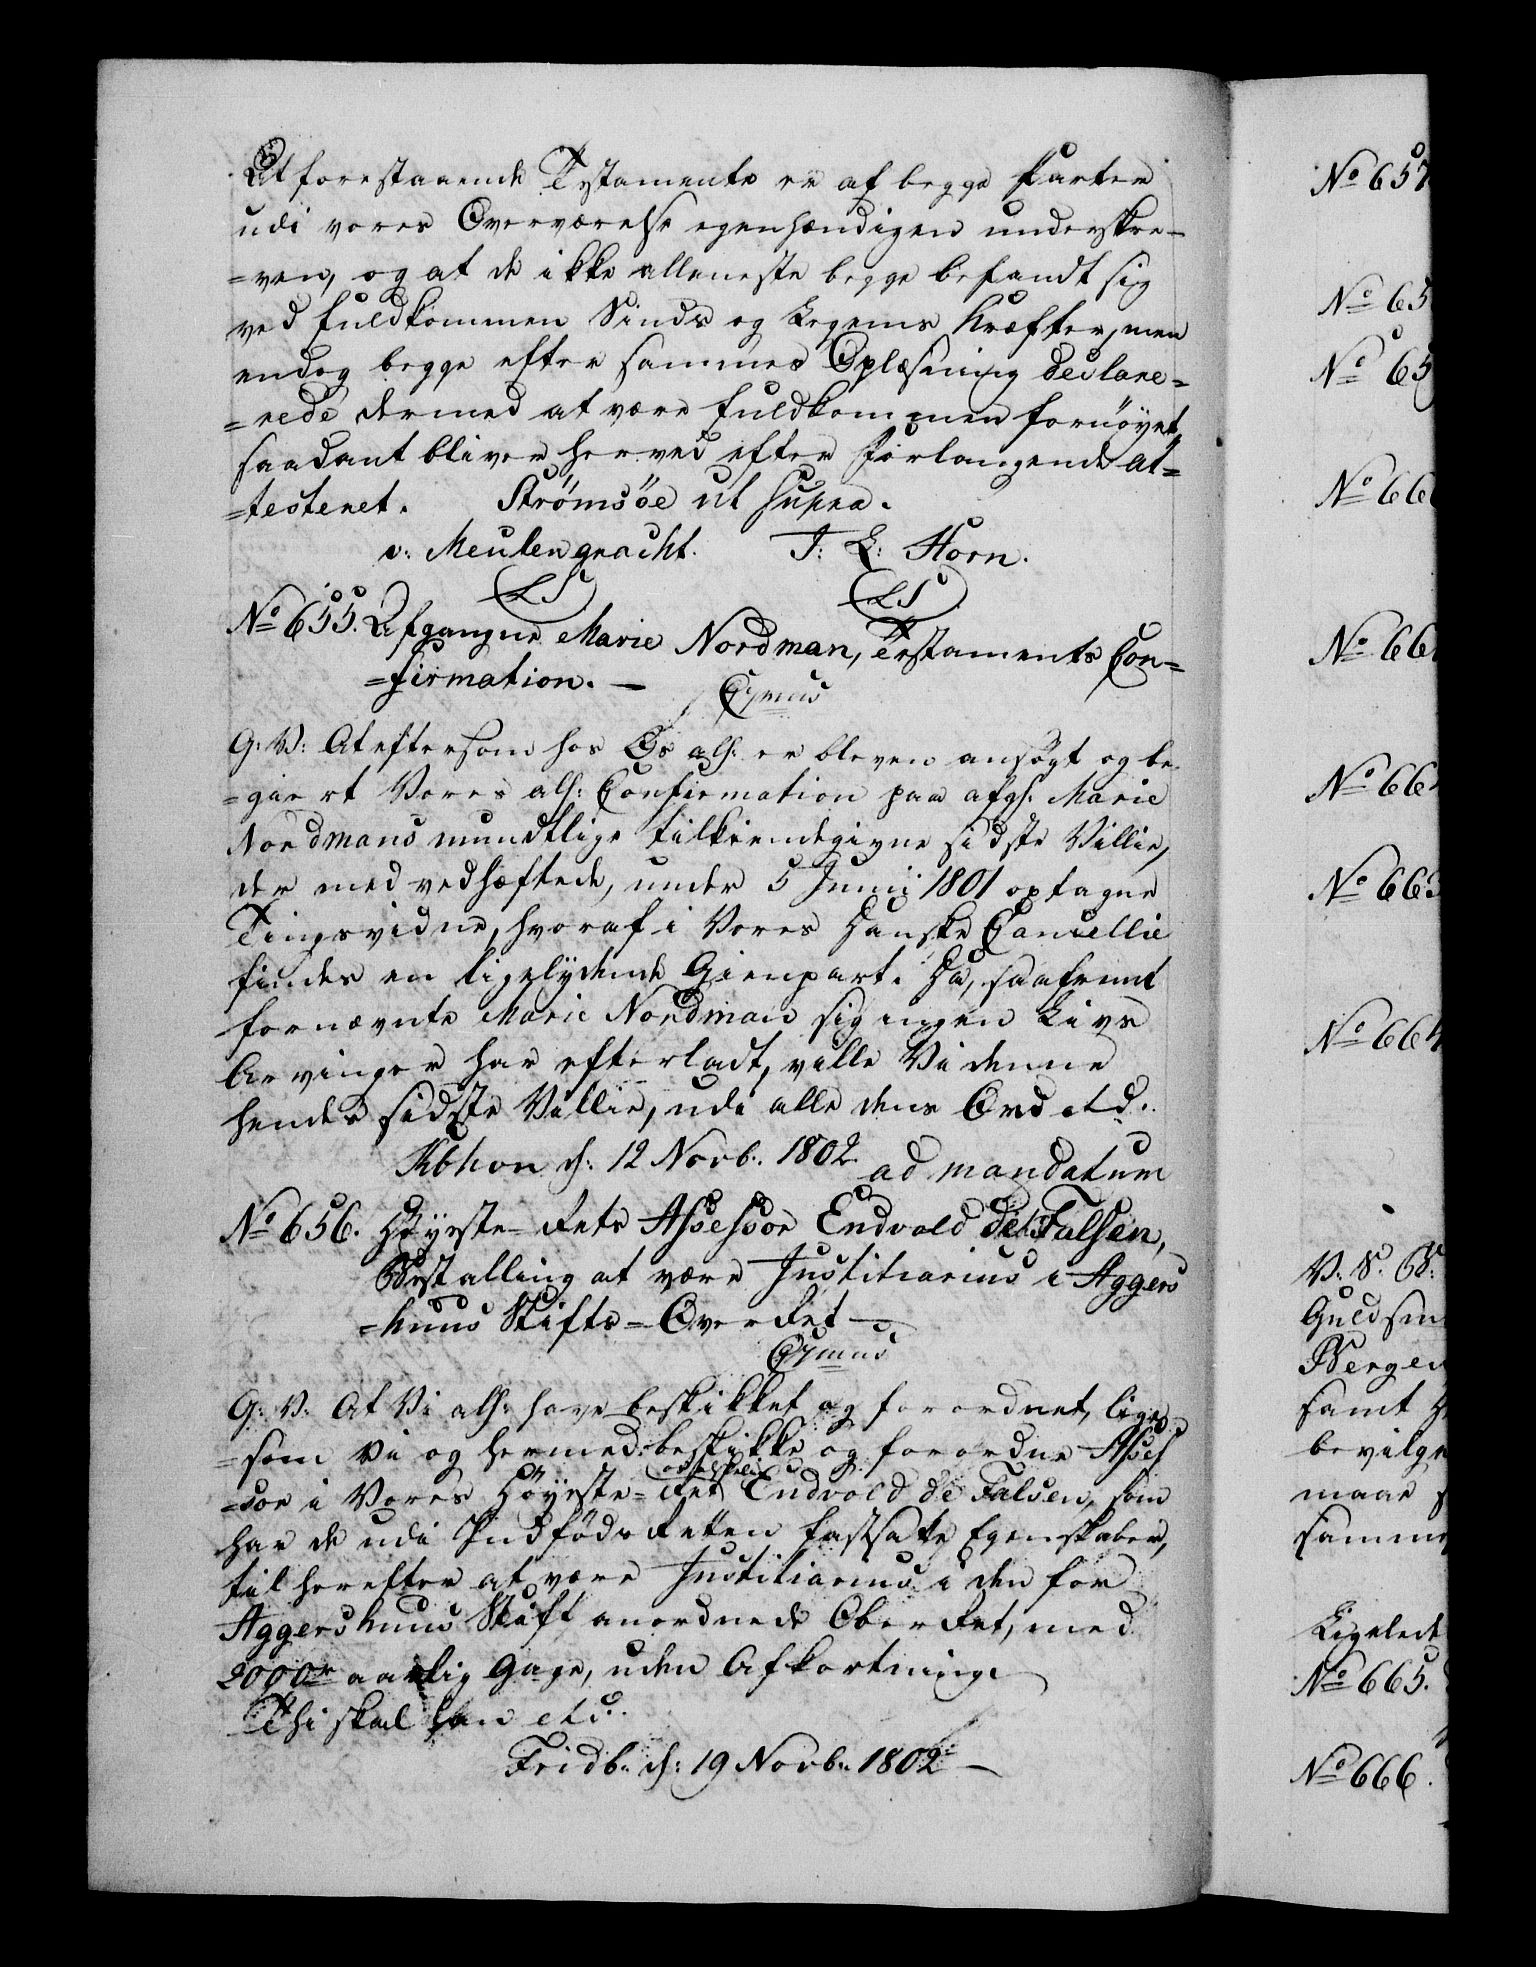 At forestaaende Testamente er af begge Parter
udi vores Overværelse egenhændigen underskre-
=ven, og at de ikke alleneste begge befandt sig
ved fuldkommen Sinds og Legems Kræfter, men
endog begge efter sammes Oplæsning declare=
=rede dermed at være fuldkommen fornöyet,
saadant bliver herved efter Forlangende at=
=testeret. Strömsöe ut supra.
v: Meulengracht. J: L: Horn.
LS LS
No 655. Afgangne Marie Nordman, Testaments Con=
=firmation. —
G: V: At eftersom hos Os alh: er bleven ansögt og be
=giert Vores alh: Confirmation paa afg: Marie
Nordmans mundtlige tilkiendegivne sidste Villie,
der med vedhæftede, under 5 Junii 1801 optagne
Tingsvidne, hvoraf i Vores Danske Cancellie
findes en ligelydende Gienpart. Da, saafremt
fornævnte Marie Nordman sig ingen Livs
Arvinger har efterladt, ville Vi denne
hendes sidste Villie, udi alle dens Ord etc.
Kbhvn d: 12 Novb: 1802. ad mandatum
No 656. Höyeste=Rets Assessor Endvold de Falsen,
Bestalling at være Justitiarius i Aggers
=huus Stifts=OverRet —
G: V: At Vi alh: have beskikket og forordnet, lige
=som Vi og hermed beskikke og forordne Asses
=sor i Vores Höyeste=Ret Endvold de Falsen, som
har de udi Indföds Retten fastsatte Egenskaber,
til herefter at være Justitiarius i den for
Aggershuus Stift anordnede Ober Ret, med
2000r aarlig Gage, uden Afkortning.
Thi skal han etc.
Fridb: d: 19 Novb: 1802 —
No 657
No 65
No 65
No 66
No 66
No 66
No 663
No 664
V: S: G:
Guldsm
Bergen
samt
bevilge
maae
samme
Ligelede
No 665.
No 666.